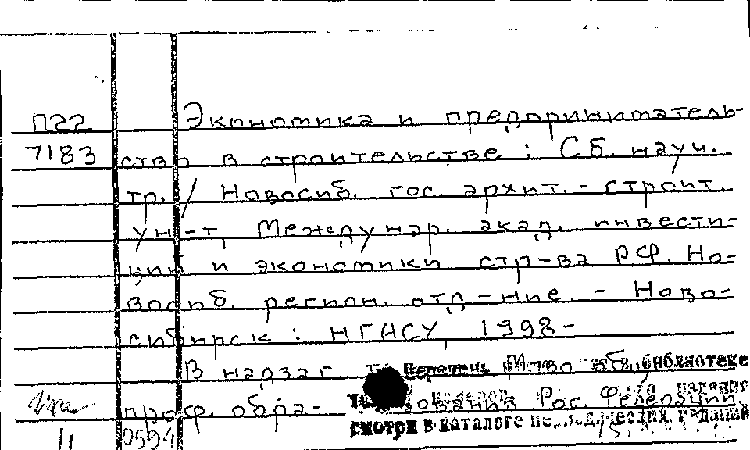 П22 Экономика и предприниматель-
7183 ство в строительстве : Сб. науч.
тр. / Новосиб. гос. архит.-строит.
ун-т, Междунар. акад. инвести-
ций и экономики стр-ва РФ. Но-
восиб. регион. отд-ние. - Ново-
сибирск : НГАСУ, 1998-
В надзаг. Перечень М-во библиотеке
проф. обра- зования Рос. Федерации
11 0594 смотри в каталоге изданий